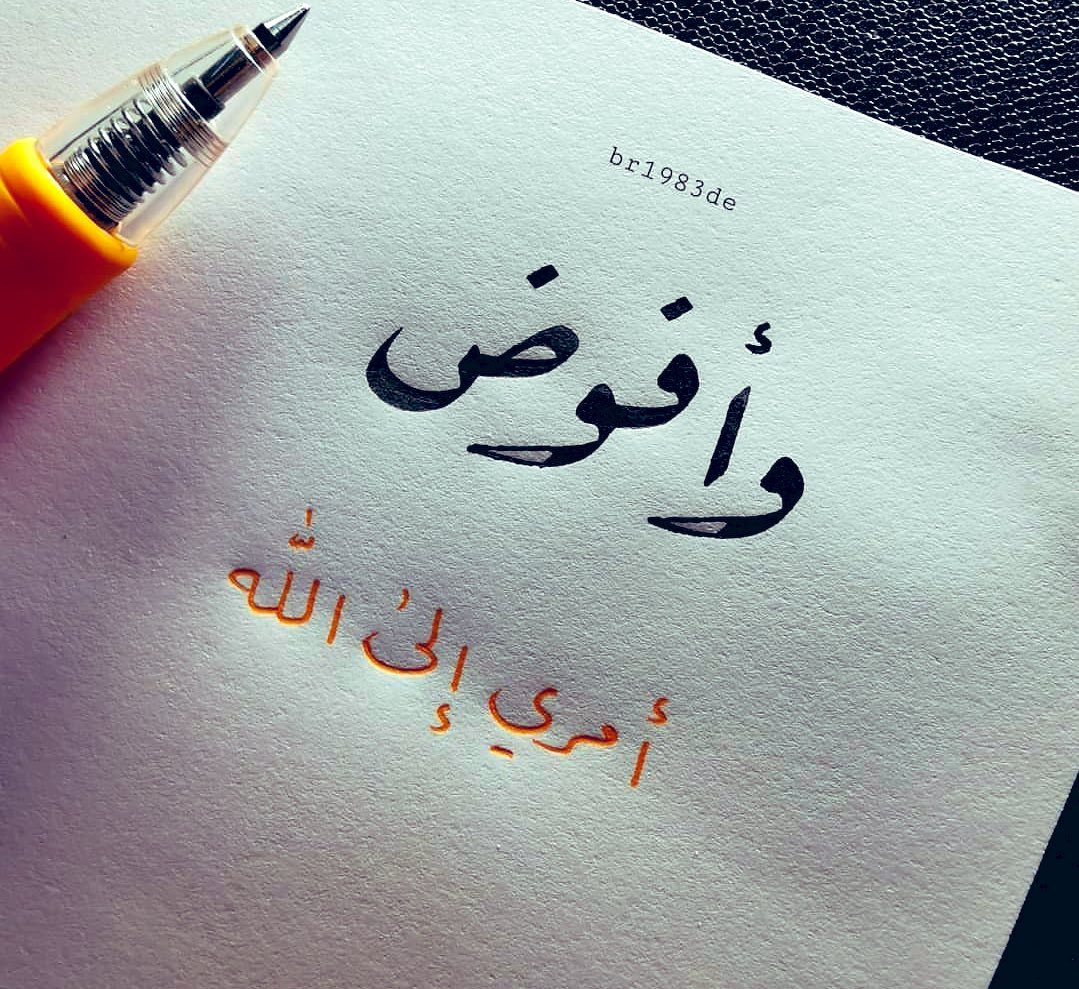 br1983de
وأفوض
أمري إلىٰ اللّٰه